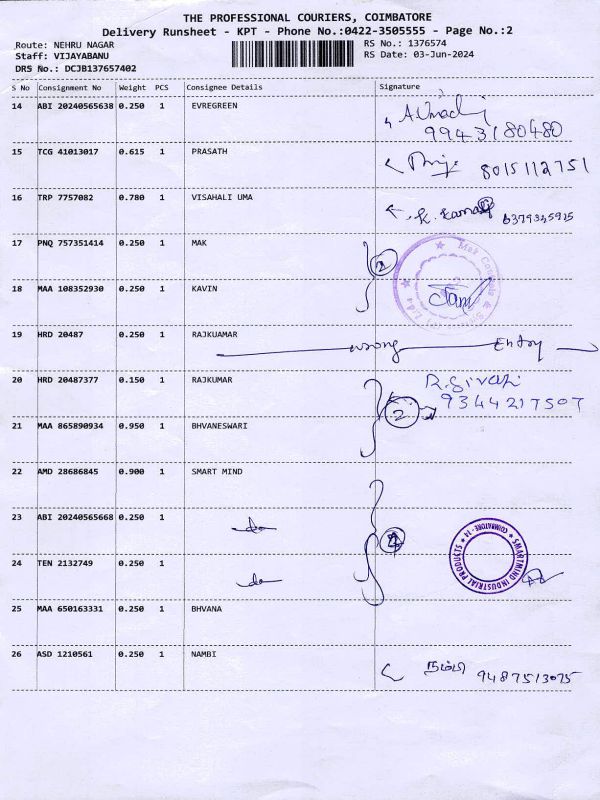 THE PROFESSIONAL COURIERS, COIMBATORE
Delivery Runsheet - KPT - Phone No.:0422-3505555 - Page No.:2
Route: NEHRU NAGAR RS No.: 1376574
Staff: VIJAYABANU RS Date: 03-Jun-2024
DRS No.: DCJB137657402
S No Consignment No Weight PCS Consignee Details Signature
14 ABI 20240565638 0.250 1 EVREGREEN
9943180480
15 TCG 41013017 0.615 1 PRASATH 8015112751
16 TRP 7757082 0.780 1 VISAHALI UMA 6379345925
17 PNQ 757351414 0.250 1 MAK
18 MAA 108352930 0.250 1 KAVIN
19 HRD 20487 0.250 1 RAJKUAMAR
wrong Entry
20 HRD 20487377 0.150 1 RAJKUMAR
9344217507
2
21 MAA 865890934 0.950 1 BHVANESWARI
22 AMD 28686845 0.900 1 SMART MIND
23 ABI 20240565668 0.250 1 do
SMARTMIND INDUSTRIAL PRODUCTS
COIMBATORE - 14
24 TEN 2132749 0.250 1 do
25 MAA 650163331 0.250 1 BHVANA
26 ASD 1210561 0.250 1 NAMBI நம்பி 9487513075